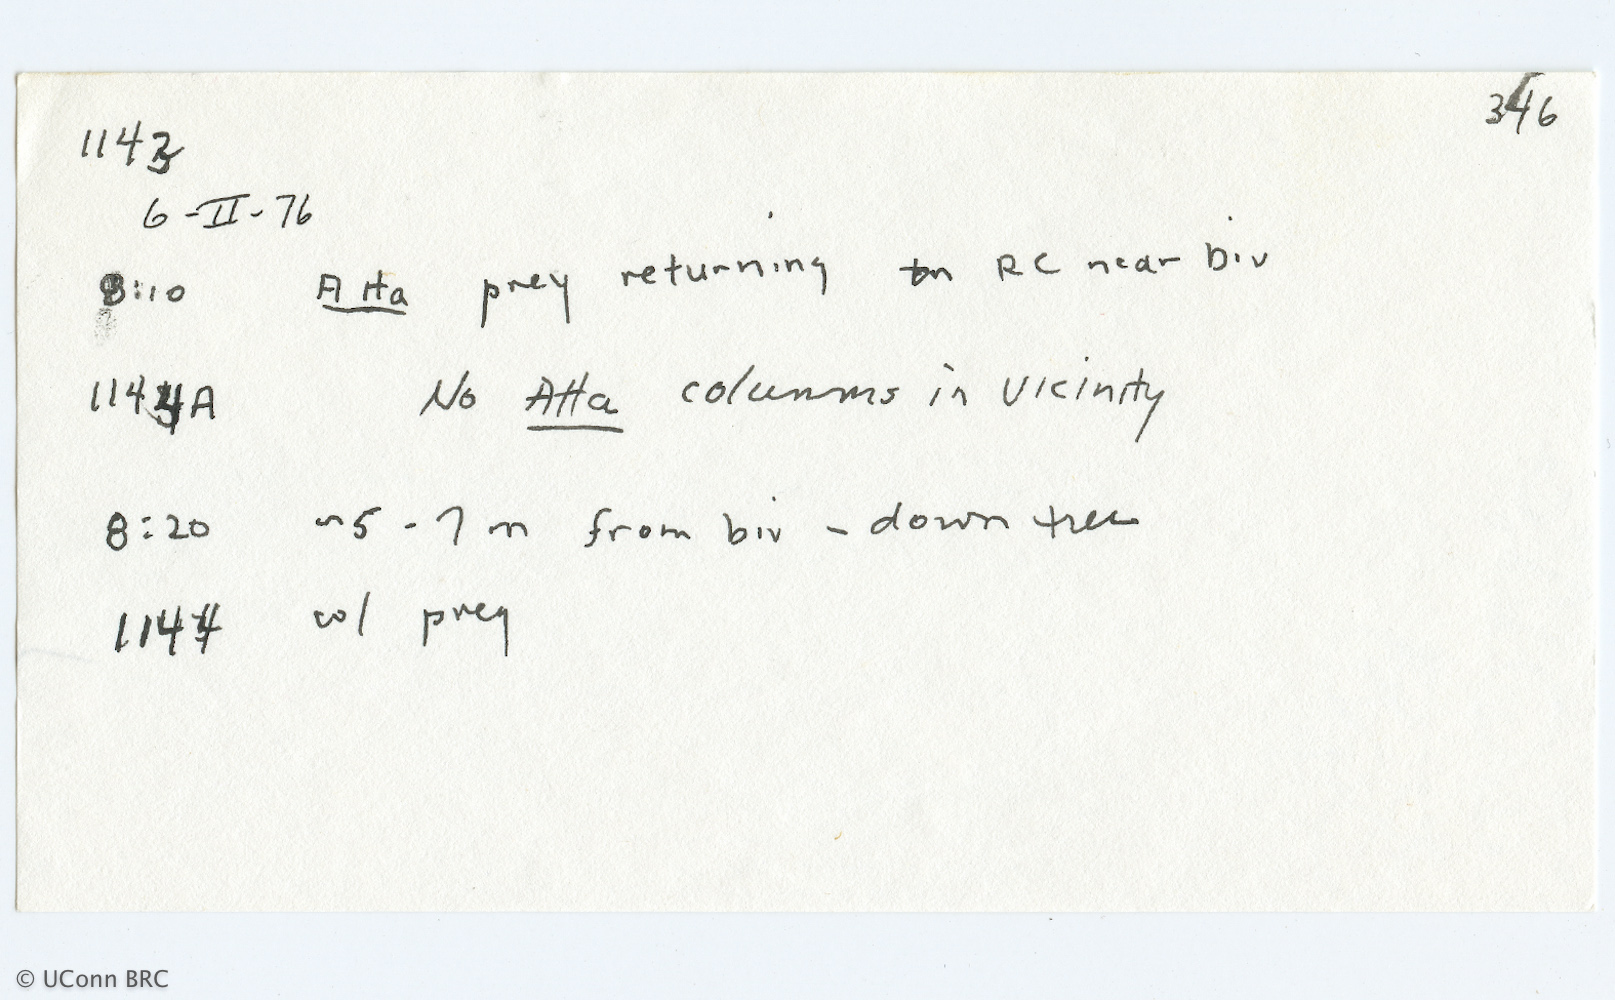 346
1143
6-II-76
8:10 Atta prey returning on RC near biv
1144A No Atta columns in vicinity
8:20 ~5-7 m from biv - down tree
1144 col prey
© UConn BRC